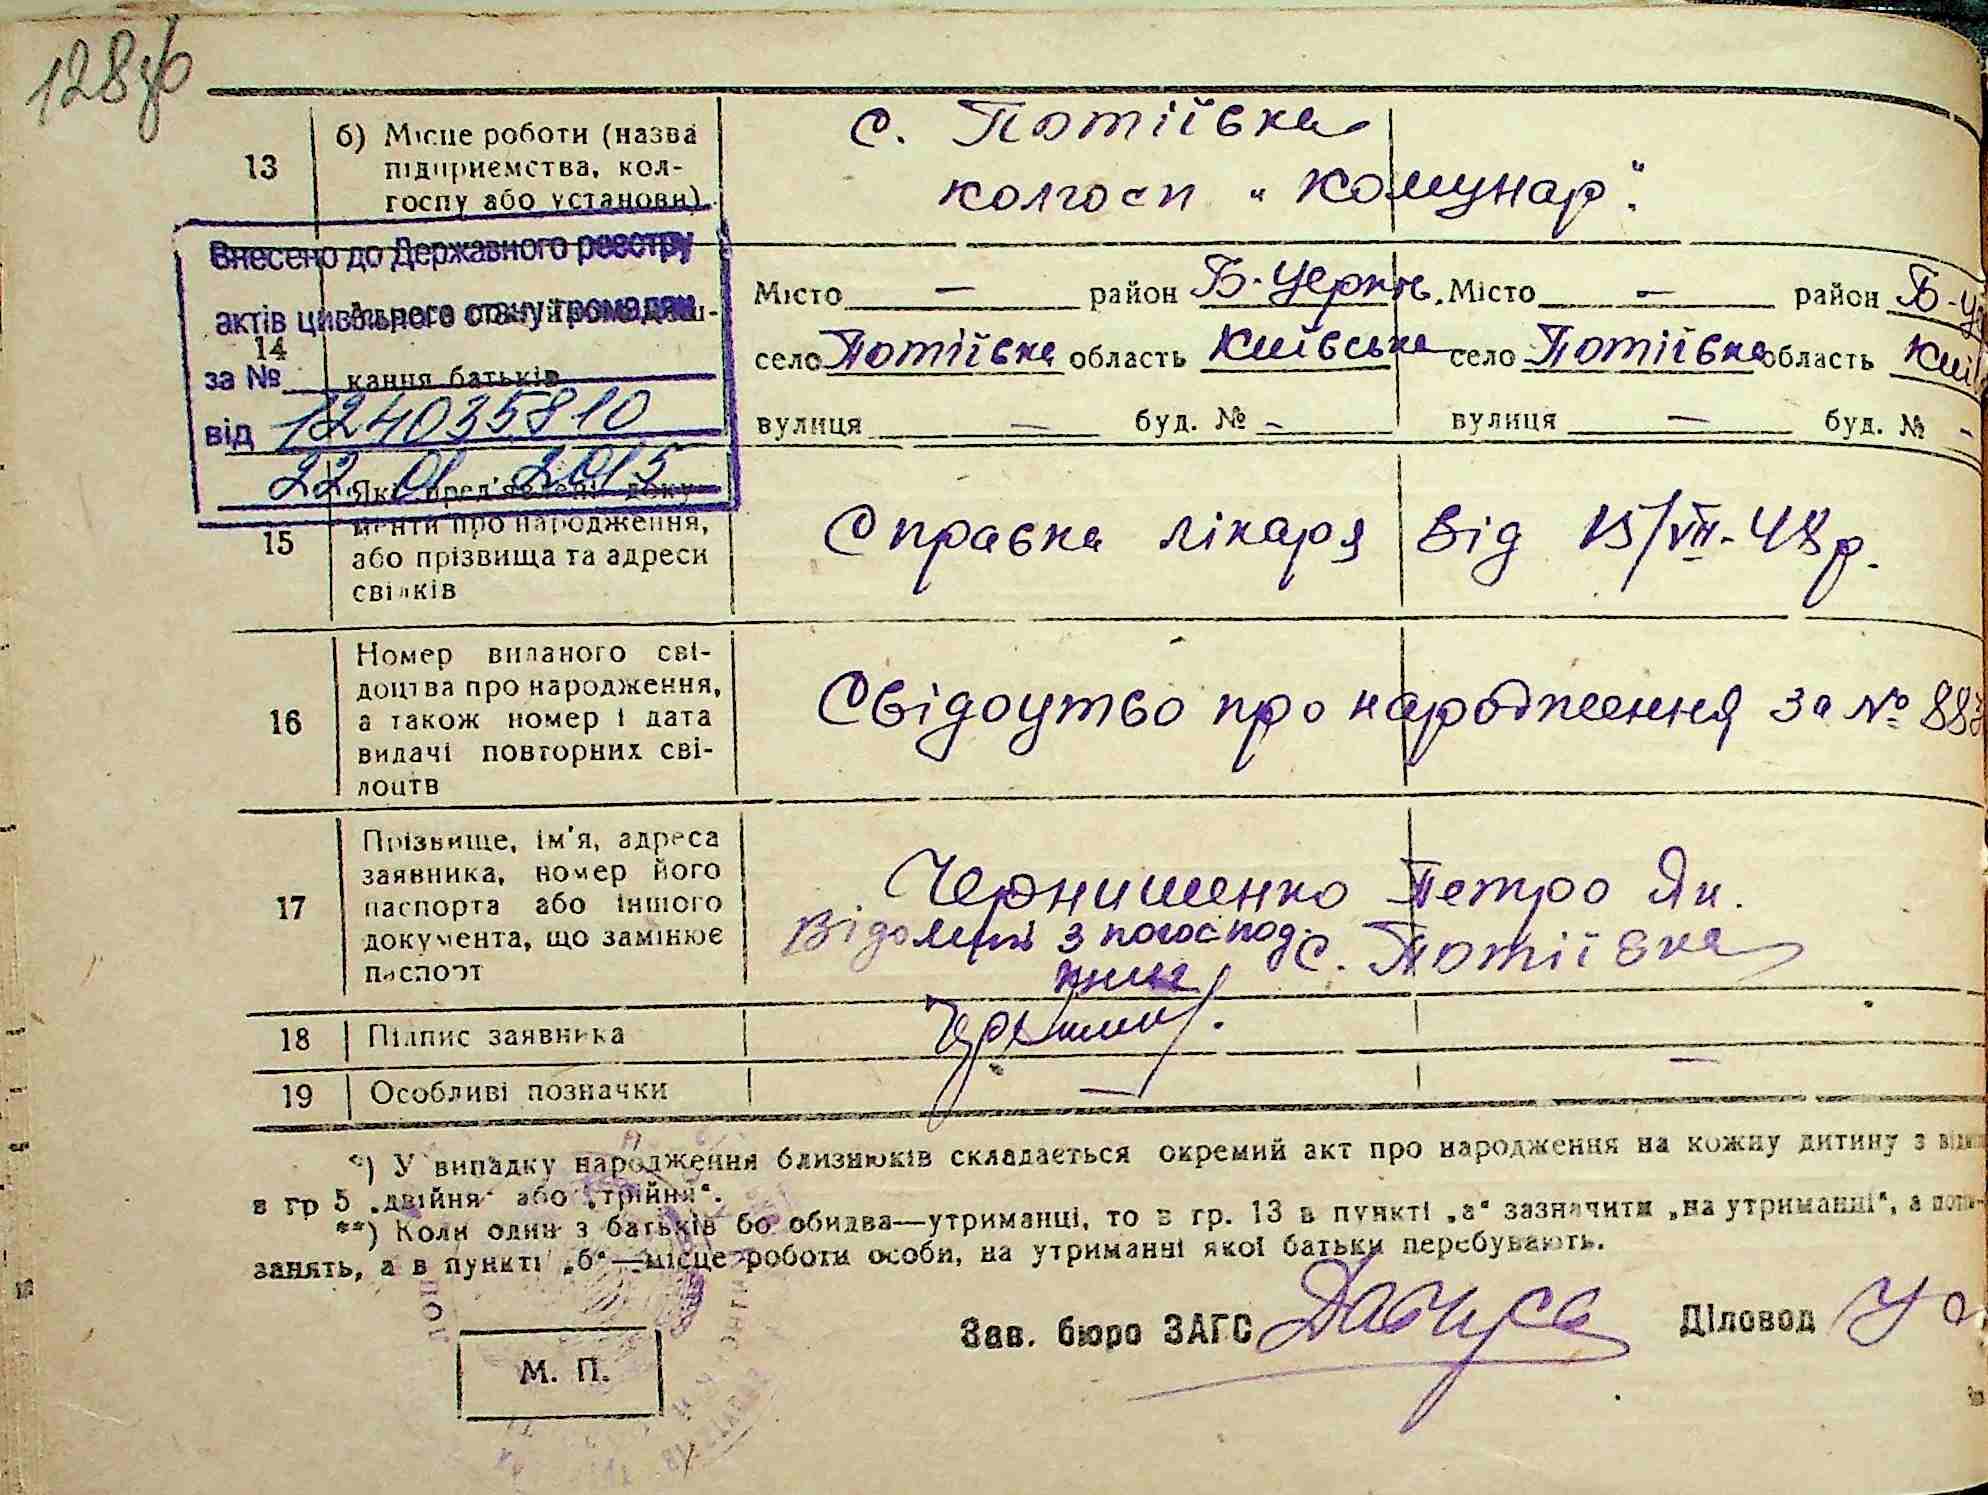 128зв
13
б) Місце роботи (назва
підприємства, кол-
госпу або установи)
с. Потіївка
колгосп "Комунар".
Внесено до Державного реєстру
актів цивільного стану громадян
за №
від 124035810
22 01 2015
14
кання батьків
Місто — район Б-Церків. Місто — район Б-Це
село Потіївка область Київська село Потіївка область Київ
вулиця — буд. № - вулиця — буд. № -
15
Які пред'явлені доку-
менти про народження,
або прізвища та адреси
свідків
Справка лікаря від 15/VII-48р.
16
Номер виданого сві-
доцтва про народження,
а також номер і дата
видачі повторних сві-
доцтв
Свідоцтво про народження за № 883
17
Прізвище, ім'я, адреса
заявника, номер його
паспорта або іншого
документа, що замінює
паспорт
Чернишенко Петро Як.
Відомий з погоспод. с. Потіївка
книги
18 Підпис заявника
19 Особливі позначки — —
*) У випадку народження близнюків складається окремий акт про народження на кожну дитину з
в гр 5 „двійня“ або „трійня“.
**) Коли один з батьків бо обидва—утриманці, то в гр. 13 в пункті „а“ зазначити „на утриманні“, а
занять, а в пункті „б“—місце роботи особи, на утриманні якої батьки перебувають.
Зав. бюро ЗАГС Діловод
М. П.